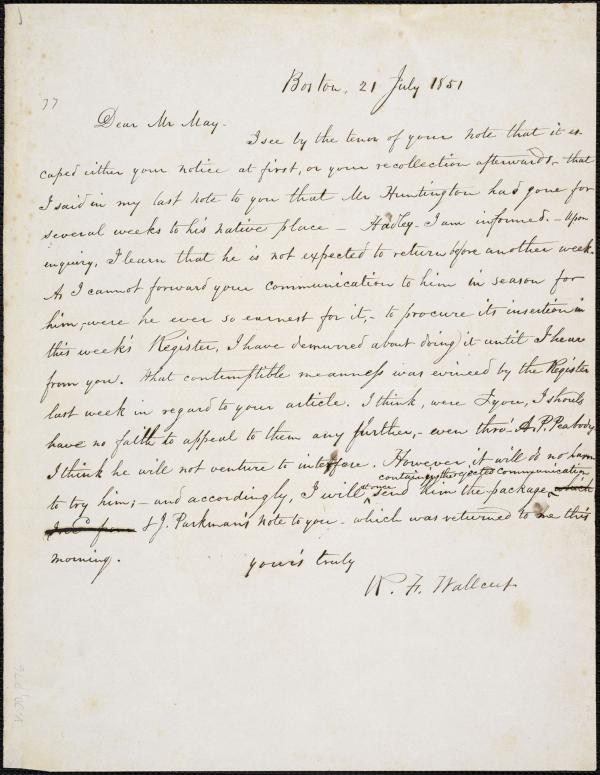 Boston, 21 July 1851
77
Dear Mr May.
I see by the tenor of your note that it es-
caped either your notice at first, or your recollection afterwards, that
I said in my last note to you that Mr Huntington had gone for
several weeks to his native place - Hadley - I am informed. - Upon
inquiry, I learn that he is not expected to return before another week.
As I cannot forward your communication to him in season for
him, - were he ever so earnest for it, - to procure its insertion in
this week's Register, I have demurred about doing it until I hear
from you. What contemptible meanness was evinced by the Register
last week in regard to your article. I think, were I you, I should
have no faith to appeal to them any further, - even thro' A. P. Peabody
I think he will not venture to interfere. However, it will do no harm
containing the rejected communication
to try him; - and accordingly, I will, at once, send him the package, which
& J. Parkman's note to you - which was returned to me this
morning.
yours truly
R. F. Wallcut